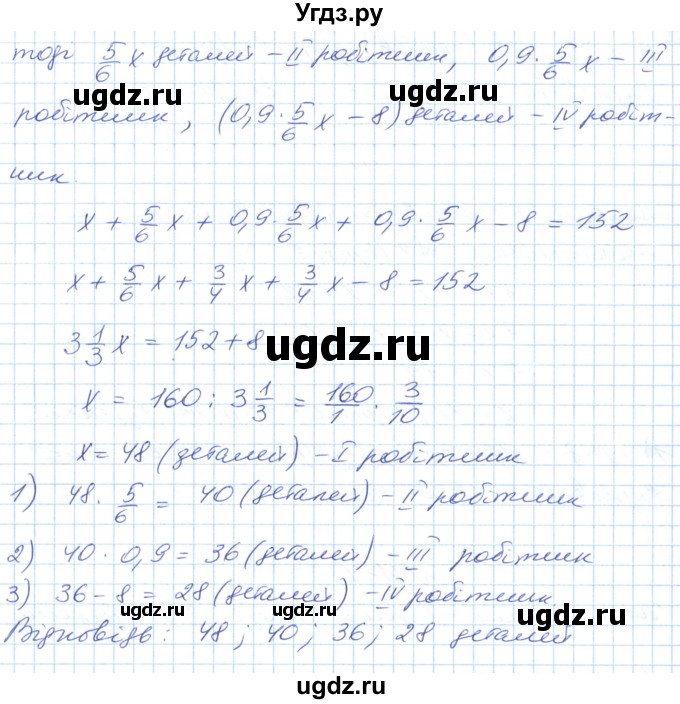 Угдз.ру
тоді 5/6 x деталей – II робітник, 0,9 · 5/6 x – III
ugdz.ru ugdz.ru
робітник, (0,9 · 5/6 x – 8) деталей – IV робіт-
ник.
x + 5/6 x + 0,9 · 5/6 x + 0,9 · 5/6 x – 8 = 152
x + 5/6 x + 3/4 x + 3/4 x – 8 = 152
3 1/3 x = 152 + 8
ugdz.ru
x = 160 : 3 1/3 = 160/1 · 3/10
x = 48 (деталей) – I робітник
1) 48 · 5/6 = 40 (деталей) – II робітник
2) 40 · 0,9 = 36 (деталей) – III робітник
3) 36 – 8 = 28 (деталей) – IV робітник
ugdz.ru ugdz.ru
Відповідь: 48; 40; 36; 28 деталей
ugdz.ru